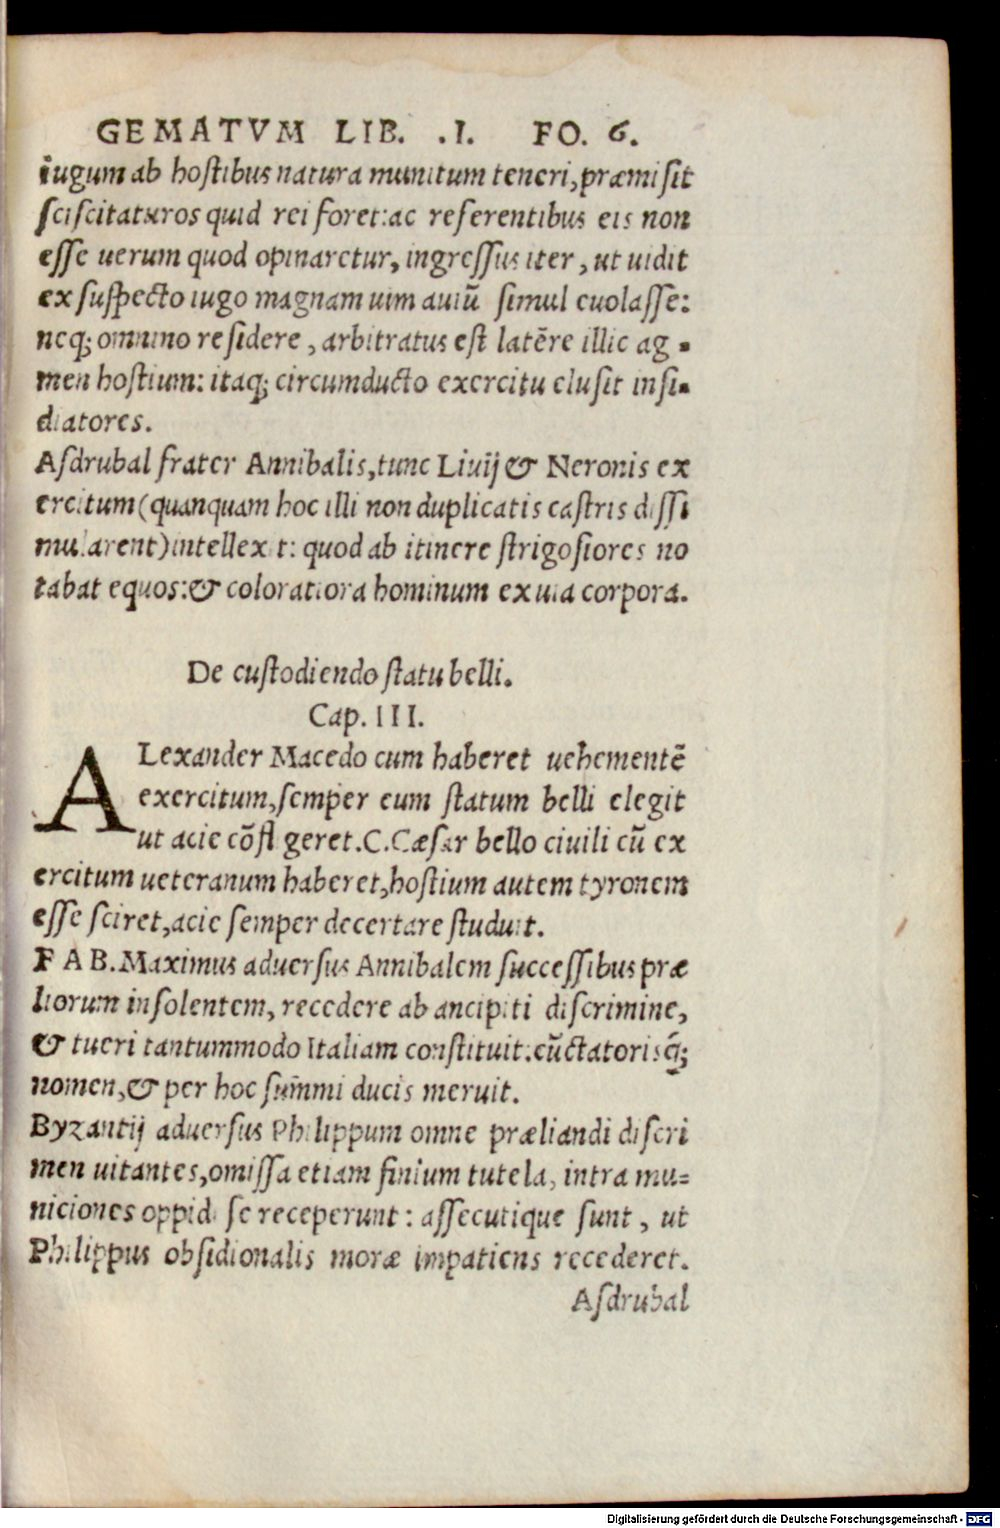 GEMATVM LIB. .I. FO. 6.
iugum ab hostibus natura munitum teneri, præmisit
sciscitaturos quid rei foret: ac referentibus eis non
esse uerum quod opinaretur, ingressus iter, ut uidit
ex suspecto iugo magnam uim auiū simul euolasse:
neq; omnino residere, arbitratus est latēre illic ag-
men hostium: itaq; circumducto exercitu elusit insi-
diatores.
Asdrubal frater Annibalis, tunc Liuij & Neronis ex
ercitum (quanquam hoc illi non duplicatis castris dissi
mularent) intellexit: quod ab itinere strigosiores no
tabat equos: & coloratiora hominum ex uia corpora.
De custodiendo statu belli.
Cap. III.
ALexander Macedo cum haberet uehementē
exercitum, semper eum statum belli elegit
ut acie cōfligeret. C. Cæsar bello ciuili cū ex
ercitum ueteranum haberet, hostium autem tyronem
esse sciret, acie semper decertare studuit.
FAB. Maximus aduersus Annibalem successibus præ
liorum insolentem, recedere ab ancipiti discrimine,
& tueri tantummodo Italiam constituit: cūctatorisq̃;
nomen, & per hoc sum̄mi ducis meruit.
Byzantij aduersus Philippum omne præliandi discri
men uitantes, omissa etiam finium tutela, intra mu-
niciones oppidi se receperunt: assecutique sunt, ut
Philippus obsidionalis moræ impatiens recederet.
Asdrubal
Digitalisierung gefördert durch die Deutsche Forschungsgemeinschaft - DFG